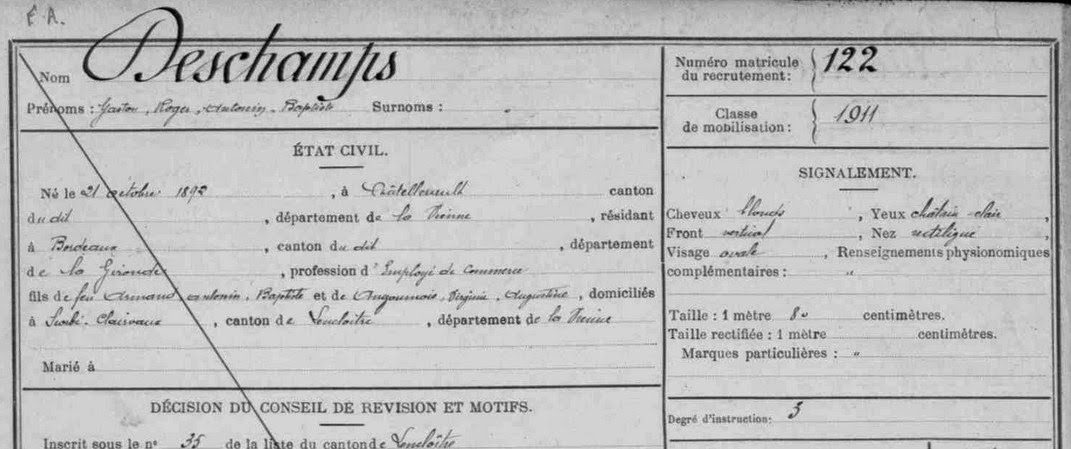 E A.
Nom Deschamps
Prénoms : Gaston, Roger, Antonin, Baptiste Surnoms :
Numéro matricule du recrutement : 122
Classe de mobilisation : 1911
ÉTAT CIVIL.
Né le 21 octobre 1892, à Châtellerault canton
du dit, département de la Vienne, résidant
à Bordeaux, canton du dit, département
de la Gironde, profession d'Employé de commerce
fils de feu Armand, Antonin, Baptiste et de Angoumois, Virginie, Augustine, domiciliés
à Clairvaux, canton de Lencloître, département de la Vienne
Marié à
DÉCISION DU CONSEIL DE REVISION ET MOTIFS.
Inscrit sous le nº 35 de la liste du canton de Lencloître
SIGNALEMENT.
Cheveux blonds, Yeux châtain clair,
Front vertical, Nez rectiligne,
Visage ovale, Renseignements physionomiques
complémentaires : "
Taille : 1 mètre 80 centimètres.
Taille rectifiée : 1 mètre centimètres.
Marques particulières : "
Degré d'instruction : 3